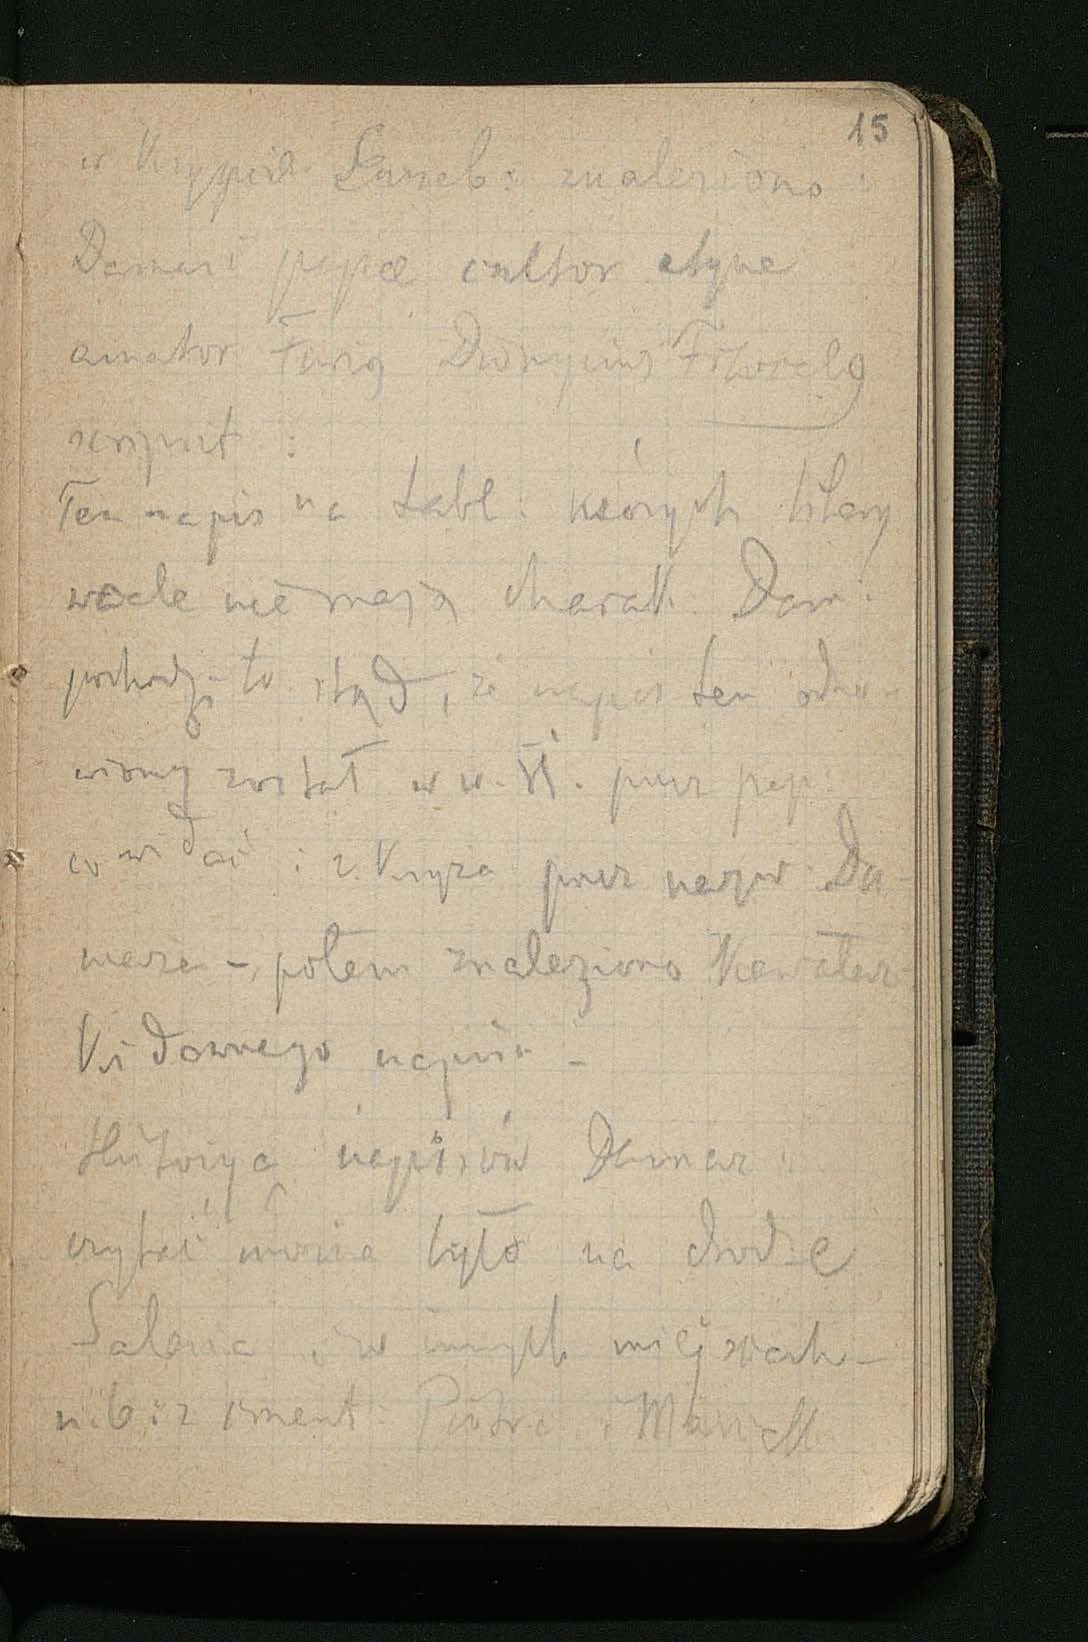 15
w Krypcie Euzeb: znaleziono:
Damasi papae cultor atque
amator Furius Dionysius Filocalus
scripsit :
Ten napis na tabl. których litery
wcale nie mają charakt. Dam:
pochodzi to stąd, że napis ten odno-
wiony został w w. VI. przez pap:
co widać i z Krzyża przez nazw. Da-
maza - potem znaleziono kawałecz-
ki dawnego napisu -
Historiya napisów Damaz :
czytać można było na drodze
Salaria, i w innych miejscach -
n.b: z cment: Piotra i Marcell